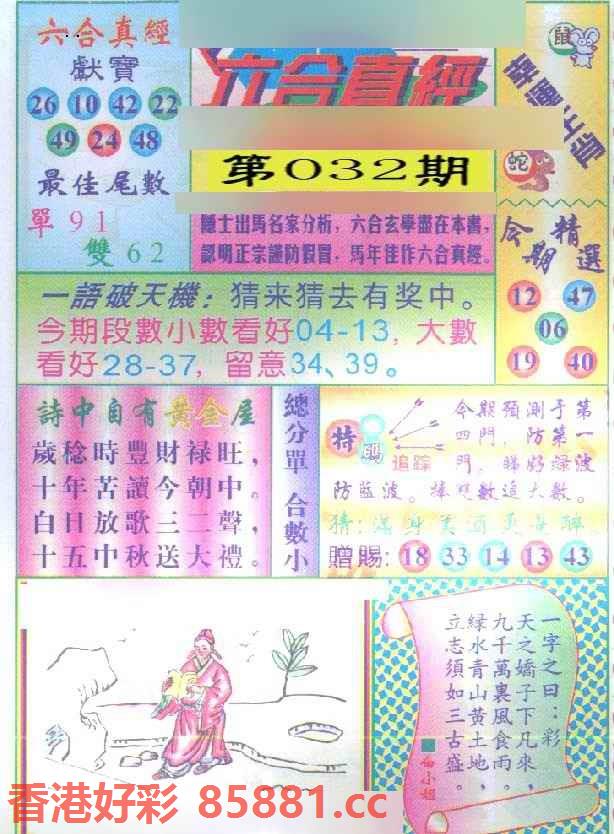 六合真經
獻寶
26 10 42 22
49 24 48
最佳尾數
單 9 1
雙 6 2
六合真經
第032期
隱士出馬名家分析,六合玄學盡在本書,
認明正宗謹防假冒,馬年佳作六合真經。
鼠
幸運生肖
蛇
今期精選
12 47
06
19 40
一語破天機:猜来猜去有奖中。
今期段數小數看好04-13,大數
看好28-37,留意34、39。
詩中自有黃金屋
歲稔時豐財禄旺,
十年苦讀今朝中。
白日放歌三二聲,
十五中秋送大禮。
總分單 合數小
特碼
追踪
今期預測于第
四門,防第一
門,睇好緑波
防藍波。捧雙數追大數。
猜:滿身美酒
贈賜:18 33 14 13 43
一字之曰:彩
天之嬌子下凡來,
九千萬裏風食雨。
緑水青山黃土地,
立志須如三古盛。
香港好彩 85881.cc